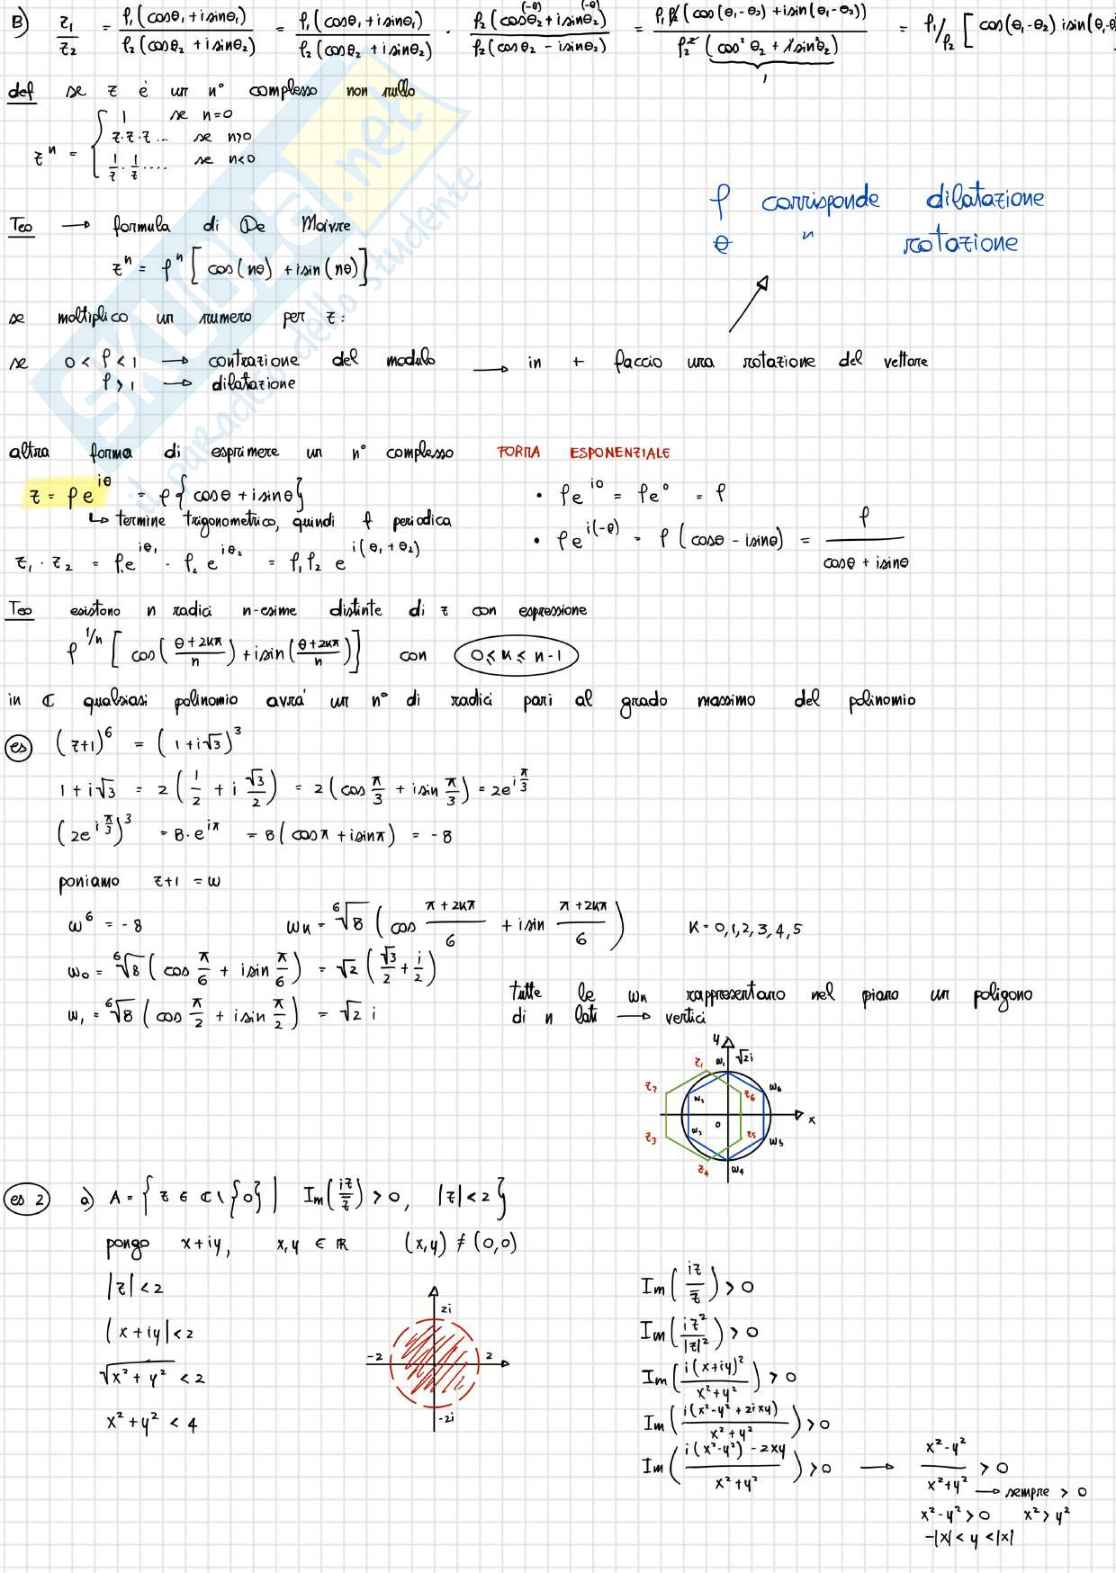 B) z₁/z₂ = ρ₁(cosθ₁ + isinθ₁)/ρ₂(cosθ₂ + isinθ₂) = ρ₁(cosθ₁ + isinθ₁)/ρ₂(cosθ₂ + isinθ₂) · ρ₂(cosθ₂ + isinθ₂)/ρ₂(cosθ₂ - isinθ₂) = ρ₁ρ₂(cos(θ₁-θ₂) + isin(θ₁-θ₂))/ρ₂²(cos²θ₂ + isin²θ₂) = ρ₁/ρ₂ [cos(θ₁-θ₂) isin(θ₁-θ
(-θ) (-θ)
1
def se z è un n° complesso non nullo
zⁿ = { 1 se n=0
z·z·z... se n>0
1/z · 1/z .... se n<0
ρ corrisponde dilatazione
θ " rotazione
Teo → formula di De Moivre
zⁿ = ρⁿ [cos(nθ) + isin(nθ)]
se moltiplico un numero per z:
se 0 < ρ < 1 → contrazione del modulo → in + faccio una rotazione del vettore
ρ > 1 → dilatazione
altra forma di esprimere un n° complesso FORMA ESPONENZIALE
z = ρe^{iθ} = ρ{cosθ + isinθ} • ρe^{i0} = ρe⁰ = ρ
↳ termine trigonometrico, quindi f periodica
• ρe^{i(-θ)} = ρ(cosθ - isinθ) = ρ/(cosθ + isinθ)
z₁ · z₂ = ρ₁e^{iθ₁} · ρ₂e^{iθ₂} = ρ₁ρ₂ e^{i(θ₁+θ₂)}
Teo esistono n radici n-esime distinte di z con espressione
ρ^{1/n} [cos((θ+2kπ)/n) + isin((θ+2kπ)/n)] con 0 ≤ k ≤ n-1
in ℂ qualsiasi polinomio avrà un n° di radici pari al grado massimo del polinomio
es (z+1)⁶ = (1+i√3)³
1+i√3 = 2(1/2 + i √3/2) = 2(cos π/3 + isin π/3) = 2e^{iπ/3}
(2e^{iπ/3})³ = 8·e^{iπ} = 8(cosπ + isinπ) = -8
poniamo z+1 = w
w⁶ = -8 wk = ⁶√8 (cos (π+2kπ)/6 + isin (π+2kπ)/6) k=0,1,2,3,4,5
w₀ = ⁶√8 (cos π/6 + isin π/6) = √2 (√3/2 + i/2)
w₁ = ⁶√8 (cos π/2 + isin π/2) = √2 i
tutte le wn rappresentano nel piano un poligono
di n lati → vertici
y √2i
z₁ w₁
z₂ w₆
w₂ z₆
0 x
z₃ w₃ z₅ w₅
z₄ w₄
es 2 a) A = {z ∈ ℂ\{0} | Im(iz/z̄) > 0, |z| < 2}
pongo x+iy, x,y ∈ ℝ (x,y) ≠ (0,0)
|z| < 2
|x+iy| < 2
√x²+y² < 2
x²+y² < 4
2i
-2 2
-2i
Im(iz/z̄) > 0
Im(iz²/|z|²) > 0
Im(i(x+iy)²/x²+y²) > 0
Im(i(x²-y²+2ixy)/x²+y²) > 0
Im(i(x²-y²)-2xy/x²+y²) > 0 → x²-y²/x²+y² > 0
→ sempre > 0
x²-y² > 0 x² > y²
-|x| < y < |x|
SKUOLA.net
il paradiso dello studente